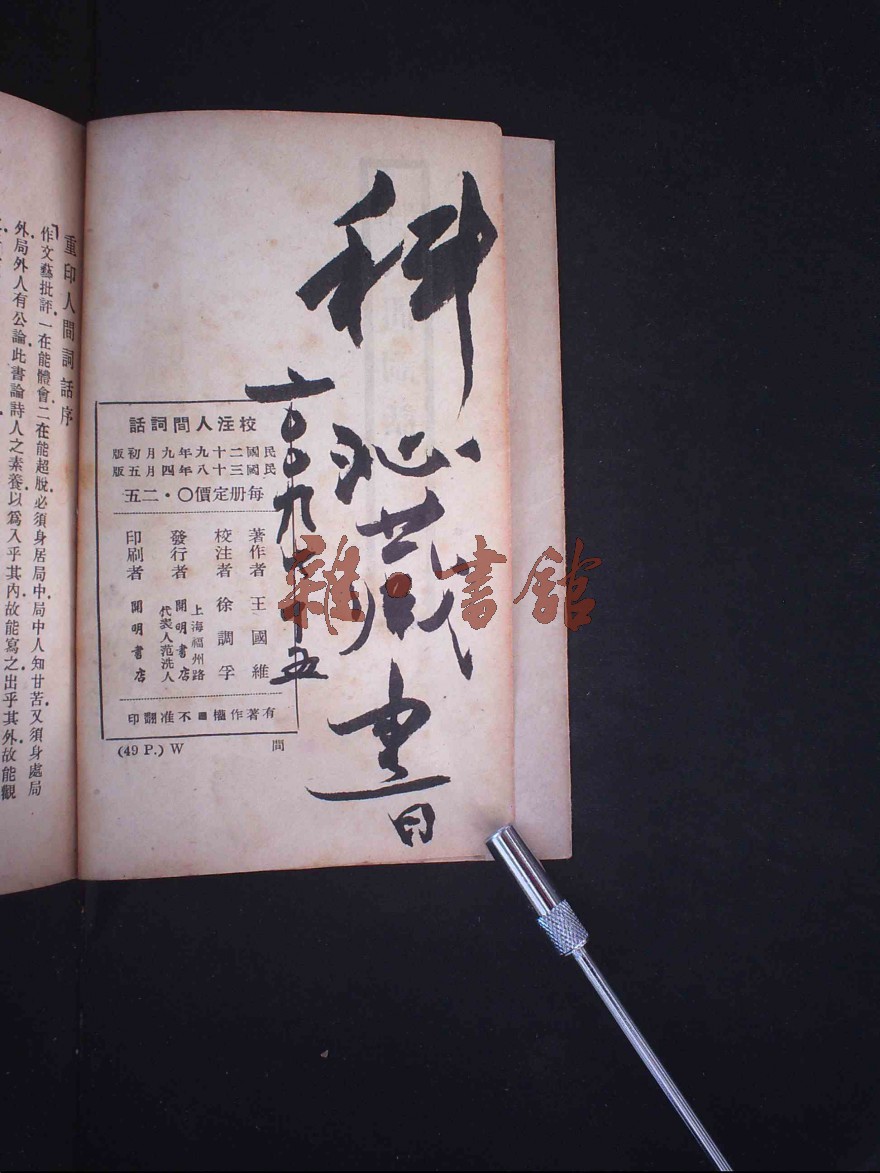 藏書
校注人間詞話
民國二十九年九月初版
民國三十八年四月五版
每册定價〇·二五
著作者 王國維
校注者 徐調孚
發行者 開明書店
上海福州路
代表人范洗人
印刷者 開明書店
有著作權■不准翻印
(49 P.) W
間
重印人間詞話序
作文藝批評，一在能體會，二在能超脫。必須身居局中，局中人知甘苦；又須身處局
外，局外人有公論。此書論詩人之素養，以爲入乎其內，故能寫之；出乎其外，故能觀
雜·書館